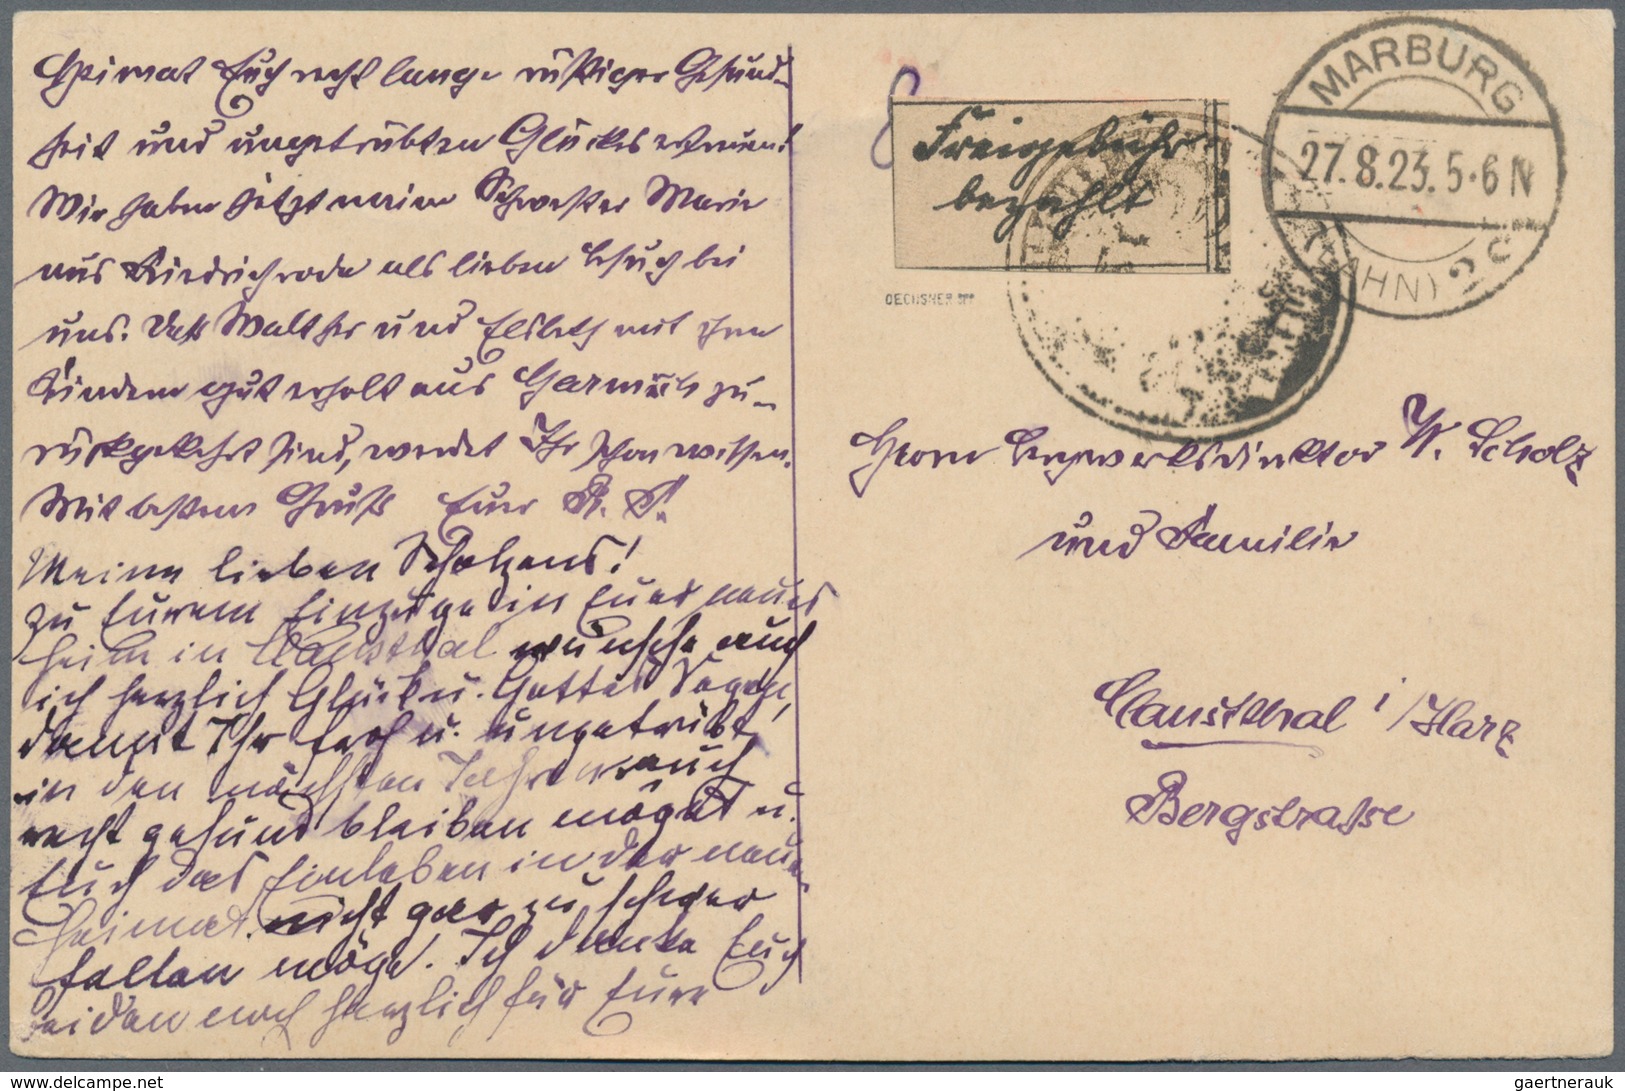 Heimat Euch recht lange rüstiger Gesund-
heit und ungetrübten Glückes erfreuen!
Wir haben jetzt meine Schwester Marie
aus Friedrichroda als lieben Besuch bei
uns. Daß Walther und Elsbeth mit ihren
Kindern gut erholt aus Garmisch zu-
rückgekehrt sind, werdet Ihr schon wissen.
Mit bestem Gruß Euer
Meine lieben Scholzens!
Zu Eurem Einzuge in Euer neues
Heim in Clausthal wünsche auch
ich herzlich Glück u. Gottes Segen,
damit Ihr froh u. ungetrübt
in den nächsten Jahren auch
recht gesund bleiben möget u.
Euch das Einleben in der neuen
Heimat nicht gar zu schwer
fallen möge. Ich danke Euch
beiden noch herzlich für Eure
Freigebühr
bezahlt
OECHSNER BPP
MARBURG
27.8.23.5-6 N
(LAHN) 2 c
Herrn Bergwerksdirektor W. Scholz
und Familie
Clausthal i/Harz
Bergstrasse
gaertnerauk
www.delcampe.net